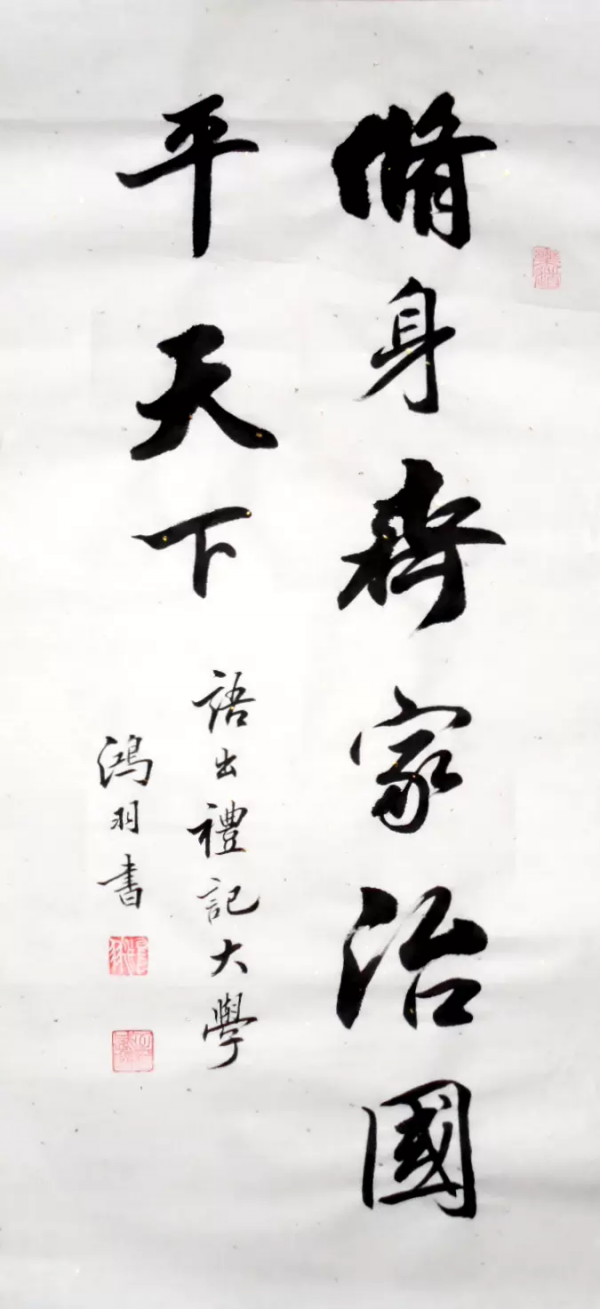 脩身齊家治國
平天下
語出禮記大學
鴻羽书